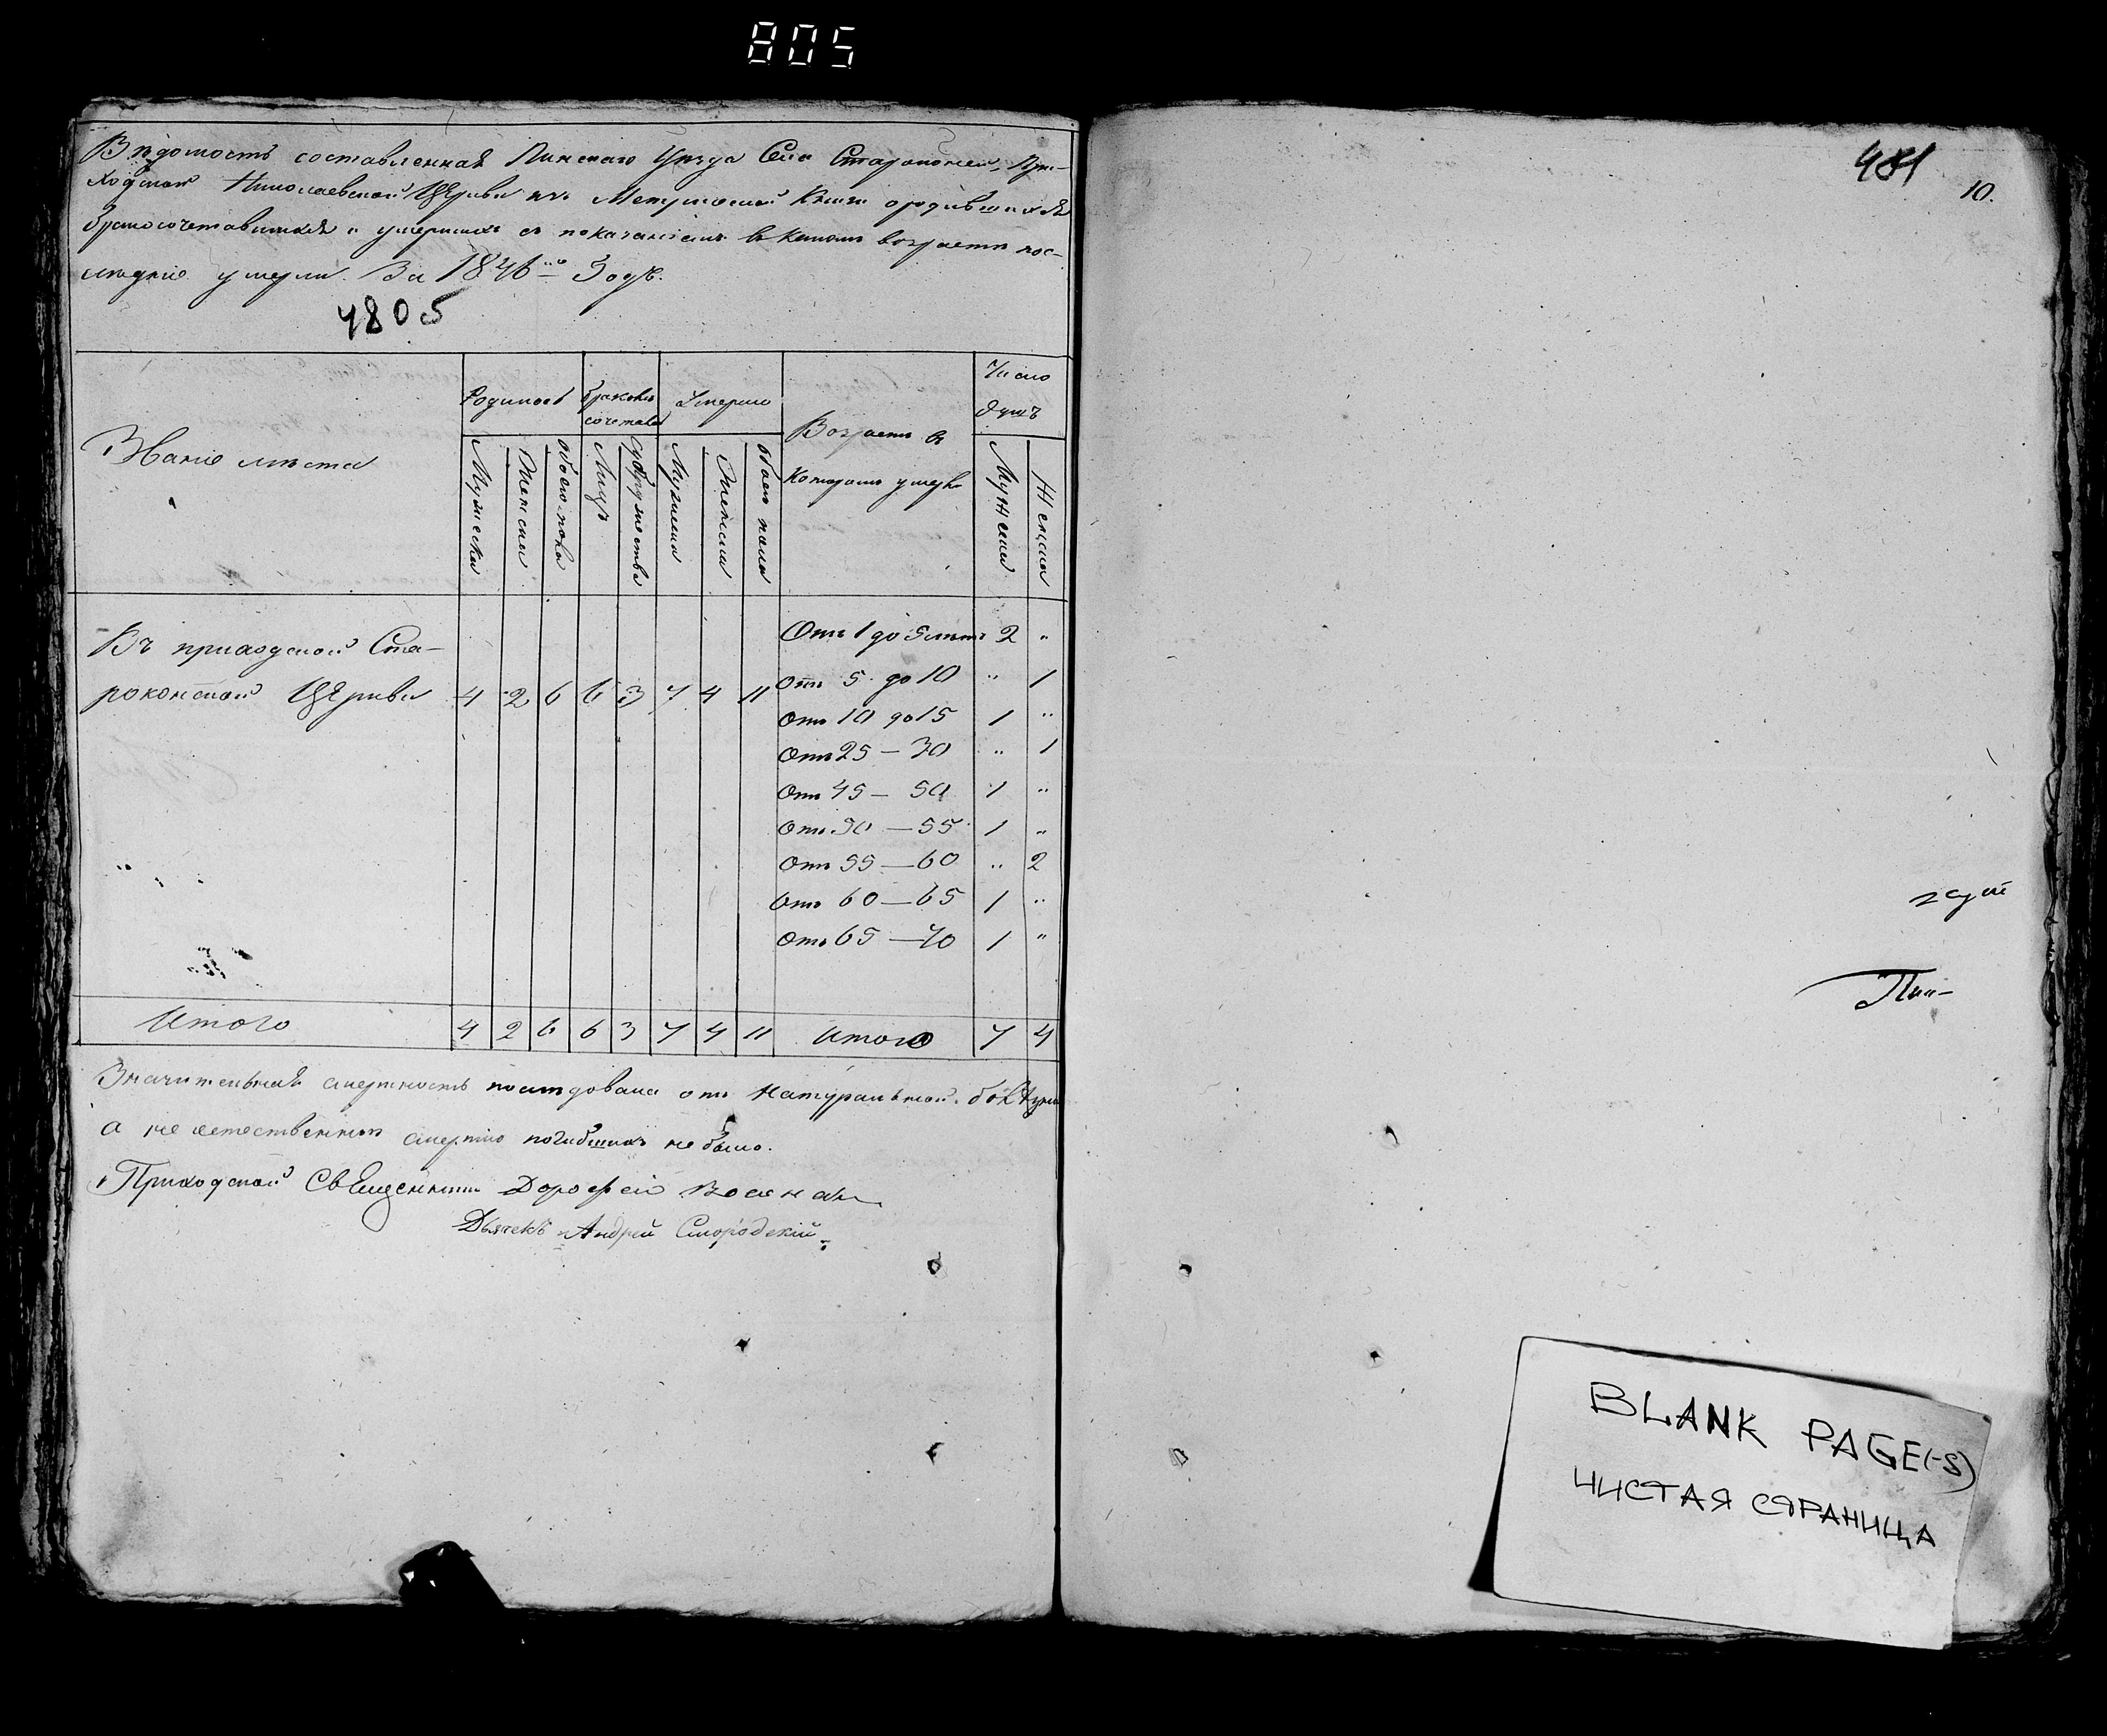 805
Вѣдомость составленная Пинскаго Уѣзда Села Староконской При-
ходской Николаевской Церкви изъ Метрической Книги о родившихся
бракосочетавшихся и умершихъ съ показаніемъ въ какомъ возрастѣ пос-
лѣдніе умерли За 1846ый Годъ.
4805
Званіе мѣста
Родилось
Мужеска
Женска
обоего пола
браковъ сочетано
Лицъ
Супружества
Умерло
Мужеска
Женска
обоего пола
Возрастъ въ
Которомъ умерли
Число
душъ
Мужеска
Женска
Въ приходской Ста-
роконской Церкви 4 2 6 6 3 7 4 11
Отъ 1 до 5 лѣтъ 2 "
Отъ 5 до 10 " 1
Отъ 10 до 15 1 "
Отъ 25 — 30 " 1
Отъ 45 — 50 1 "
Отъ 50 — 55 1 "
Отъ 55 — 60 " 2
Отъ 60 — 65 1 "
Отъ 65 — 70 1 "
Итого 4 2 6 6 3 7 4 11 Итого 7 4
Значительная смертность послѣдовала отъ Натуральной
а не естественною смертію погибшихъ не было.
Приходской Священникъ Дорофей
Дьячекъ Андрей Смородскій
481
10.
BLANK PAGE(-S)
ЧИСТАЯ СТРАНИЦА